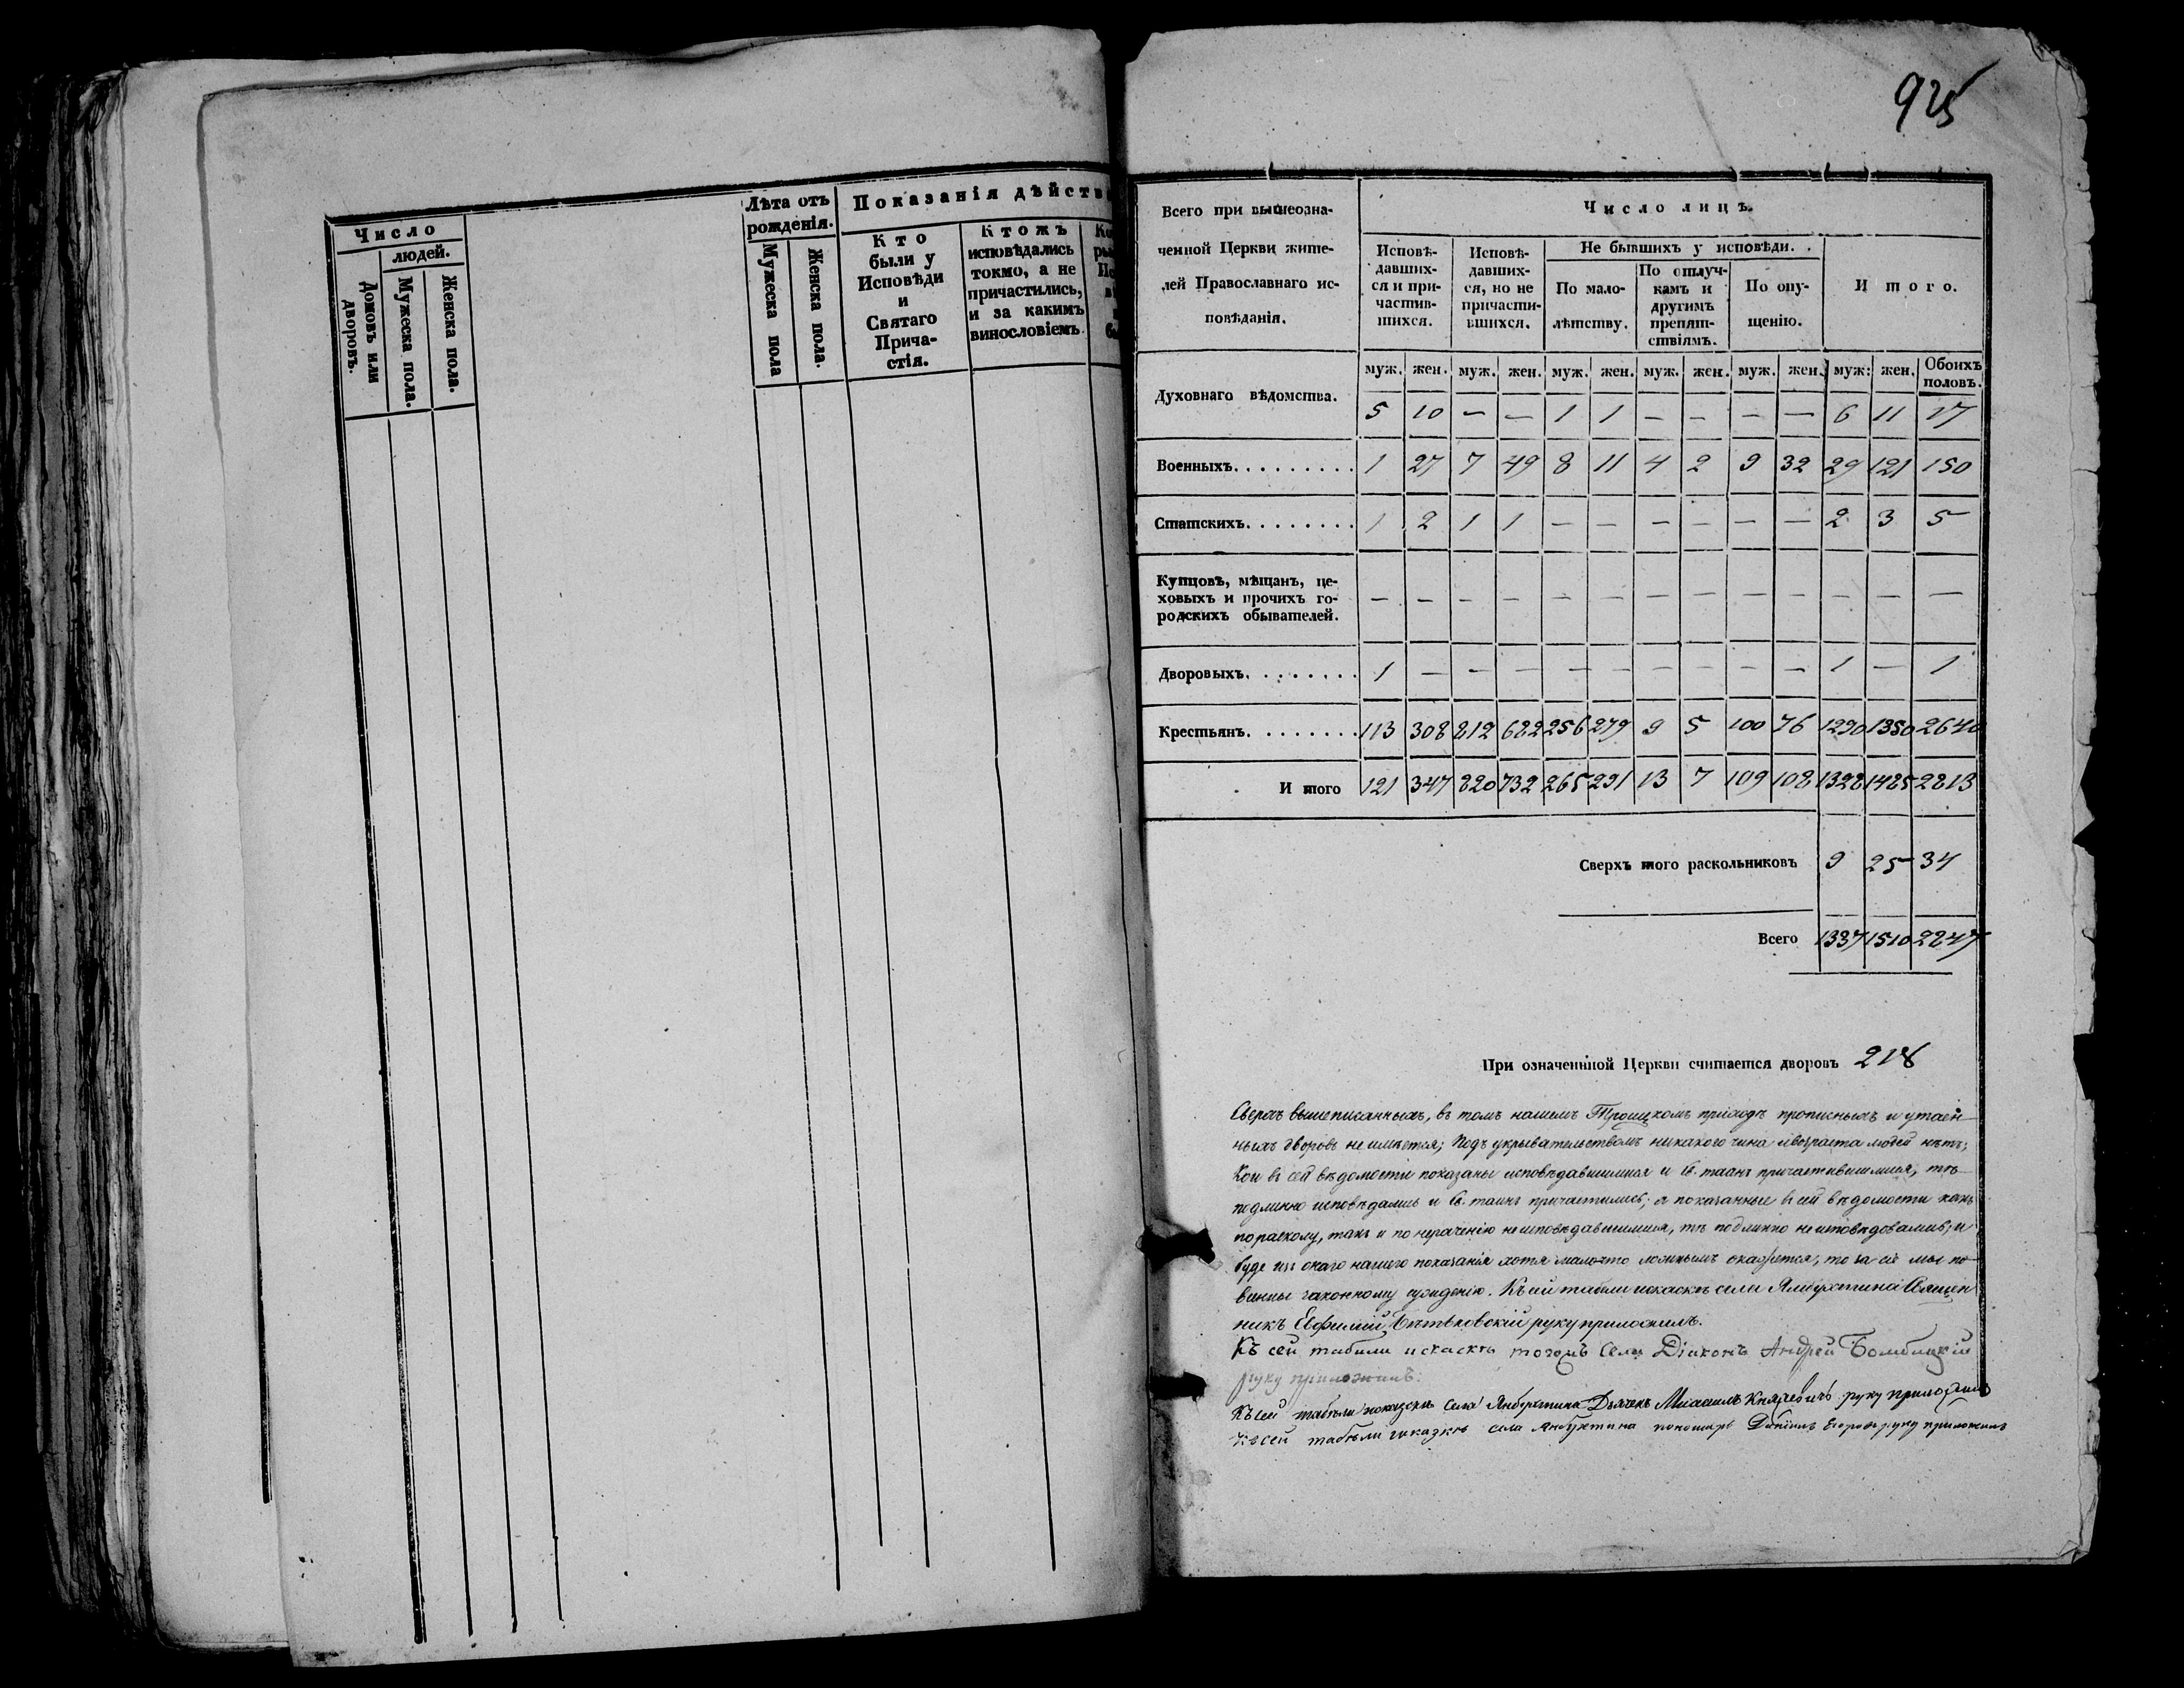 925
Число
людей.
Домовъ или дворовъ.
Мужеска пола.
Женска пола.
Лѣта отъ рожденія.
Мужеска пола
Женска пола.
Показанія дѣйств
Кто
были у
Исповѣди
и
Святаго
Прича-
стія.
Ктожъ
исповѣдались
токмо, а не
причастились,
и за какимъ
винословіемъ.
Всего при вышеозна-
ченной Церкви жите-
лей Православнаго ис-
повѣданія.
Число лицъ.
Исповѣ-
давших-
ся и при-
частив-
шихся.
Исповѣ-
давших-
ся, но не
причасти-
вшихся.
Не бывшихъ у исповѣди.
По мало-
лѣтству.
По отлуч-
камъ и
другимъ
препят-
ствіямъ.
По опу-
щенію.
Итого.
муж. жен. муж. жен. муж. жен. муж. жен. муж. жен. муж: жен. Обоихъ половъ.
Духовнаго вѣдомства. 5 10 — — 1 1 — — — — 6 11 17
Военныхъ. . . . . . . . . 1 27 7 49 8 11 4 2 9 32 29 121 150
Статскихъ. . . . . . . . 1 2 1 1 — — — — — — 2 3 5
Купцовъ, мѣщанъ, це-
ховыхъ и прочихъ го-
родскихъ обывателей. — — — — — — — — — — — — —
Дворовыхъ. . . . . . . . 1 — — — — — — — — — 1 — 1
Крестьянъ. . . . . . . . 113 308 812 682 256 279 9 5 100 76 1290 1350 2640
Итого 121 347 820 732 265 291 13 7 109 108 1328 1485 2813
Сверхъ того раскольниковъ 9 25 34
Всего 1337 1510 2847
При означенной Церкви считается дворовъ 218
Сверхъ вышеписанныхъ, въ томъ нашемъ Троицкомъ приходѣ прописныхъ и утаен-
ныхъ дворовъ не имѣется; подъ укрывательствомъ никакого чина и возраста людей нѣтъ;
Кои въ сей вѣдомости показаны исповѣдавшимися и Св. таинъ причастившимися, тѣ
подлинно исповѣдались и Св. таинъ причастились; а показанные въ сей вѣдомости какъ
по расколу, такъ и по нераченію не исповѣдавшимися, тѣ подлинно не исповѣдовались; и
буде изъ онаго нашего показанія хотя мало что ложнымъ окажется, то за сіе мы по-
винны законному сужденію. Къ сей табели и сказкѣ села Янбухтина Священ
никъ Евфимій руку приложилъ.
Къ сей табели и скаскѣ тогожъ Села Діаконъ Андрей
руку приложилъ.
Къ сей табѣли и сказкѣ Села Янбухтина Дьячекъ Михаилъ Княжевичь руку приложилъ
Къ сей табѣли и сказкѣ села Янбухтина пономарь Даніилъ Егоровъ руку приложилъ